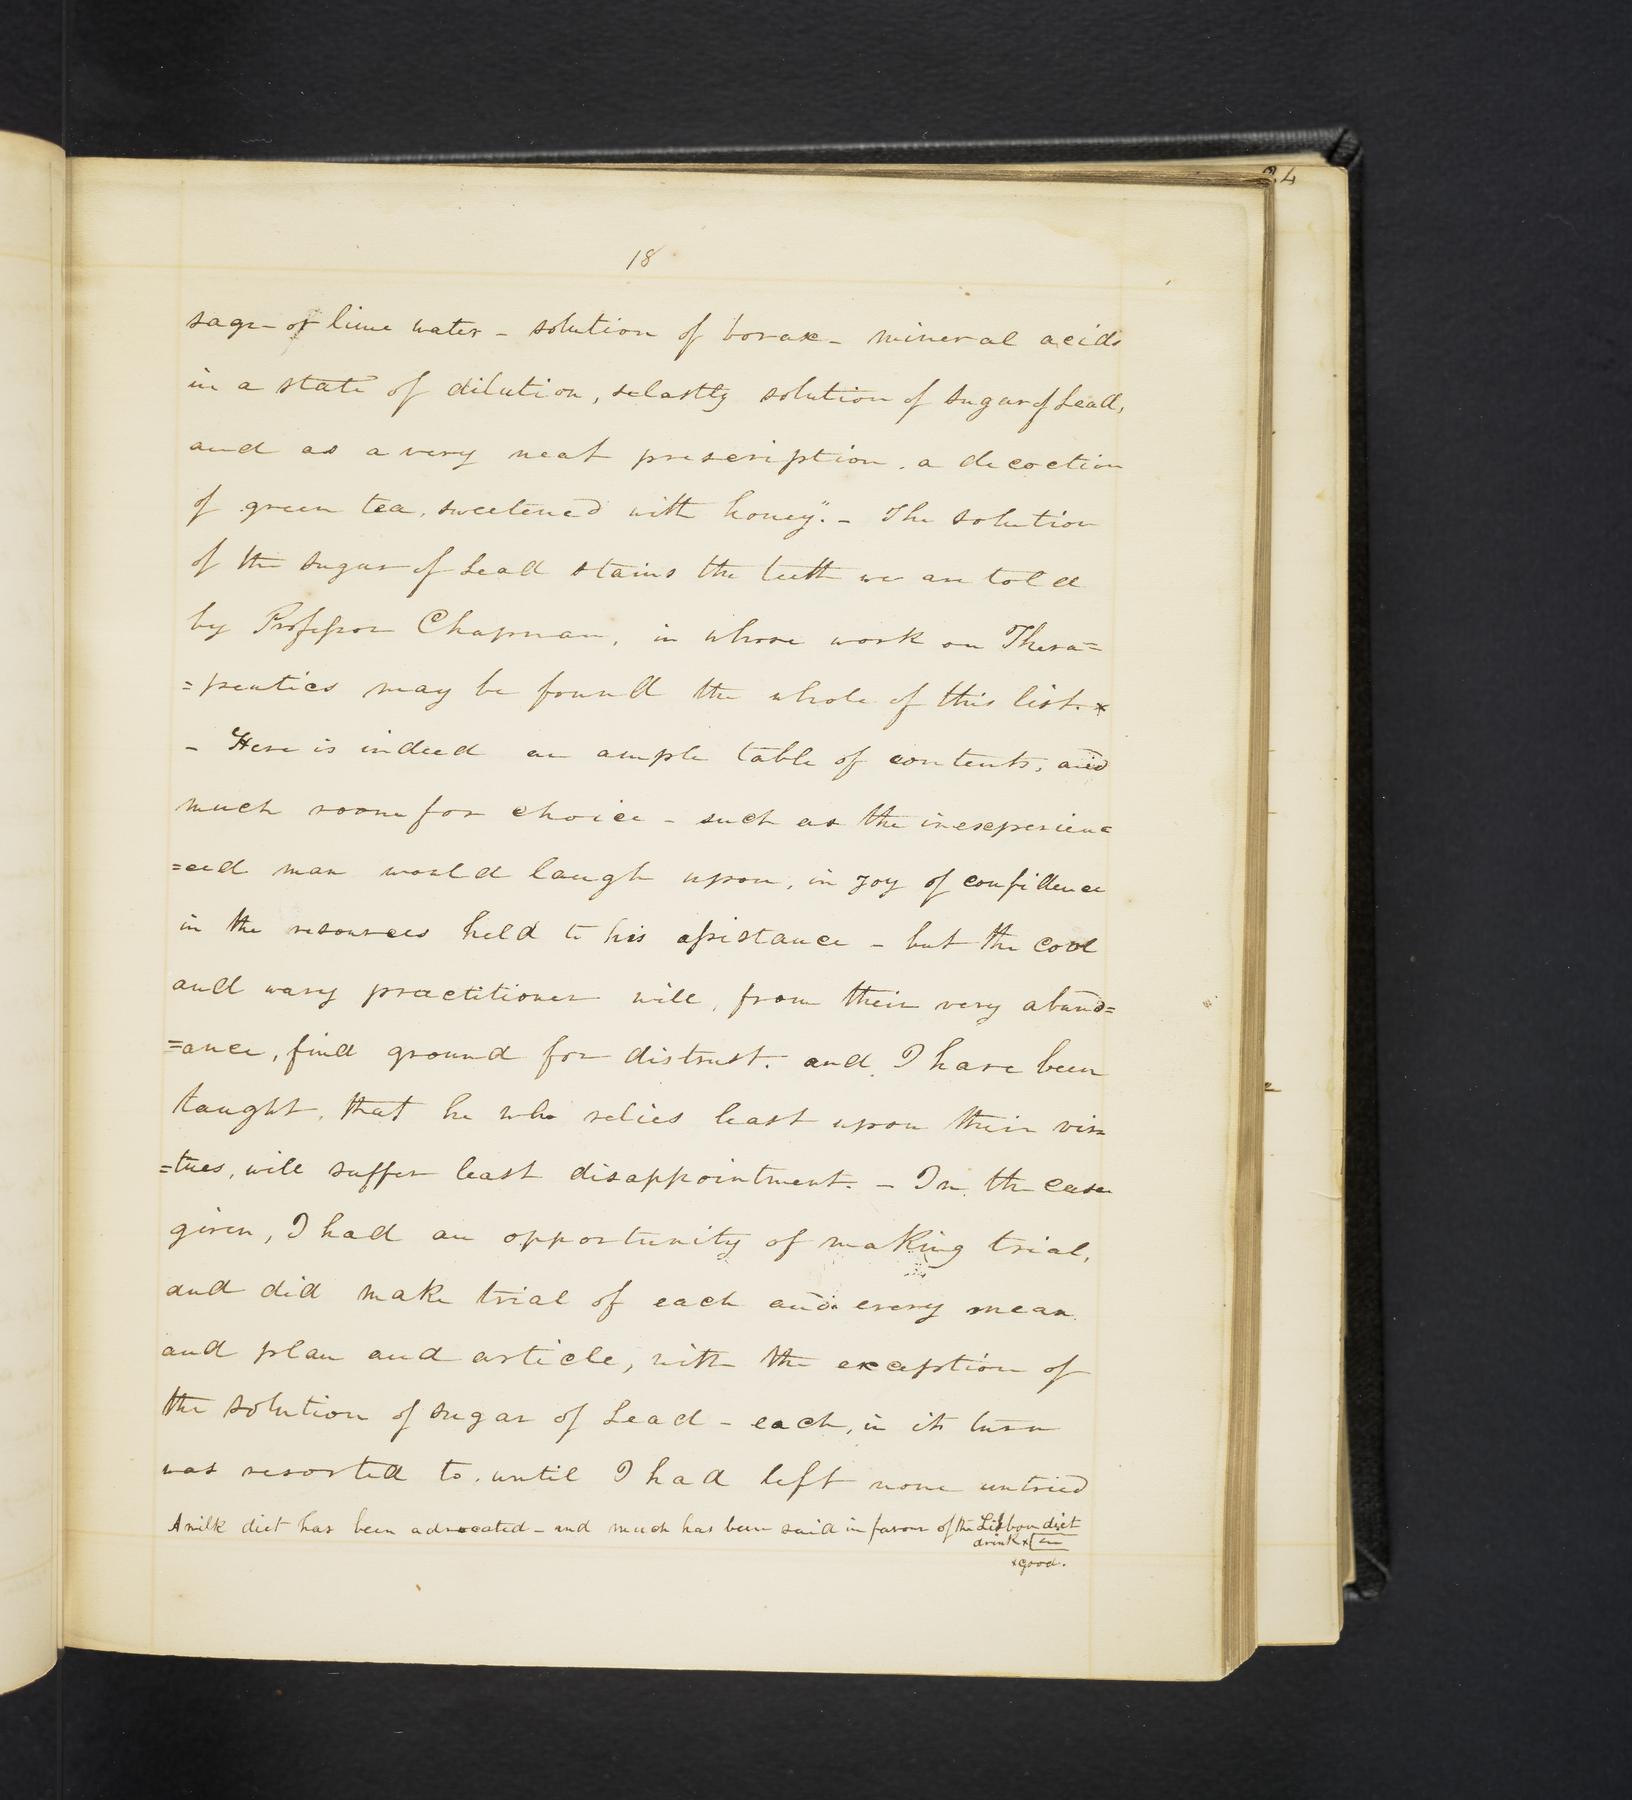 24
18
sage – or lime water – solution of borax – mineral acids
in a state of dilution, & lastly solution of Sugar of Lead,
and as a very neat prescription, a decoction
of green tea, sweetened with honey". – The solution
of the sugar of Lead stains the teeth we are told
by Professor Chapman, in whose work on Thera=
=peutics may be found the whole of this list. *
– Here is indeed an ample table of contents, and
much room for choice – such as the inexperien=
=ced man would laugh upon, in joy of confidence
in the resources held to his assistance – but the cool
and wary practitioner will, from their very abund=
=ance, find ground for distrust. and, I have been
taught, that he who relies least upon their vir=
=tues, will suffer least disappointment. – In the case
given, I had an opportunity of making trial,
and did make trial of each and every mean
and plan and article, with the exception of
the solution of sugar of Lead – each, in its turn
was resorted to, until I had left none untried
A milk diet has been advocated – and much has been said in favour of the Lisbon diet
drink x
x good.